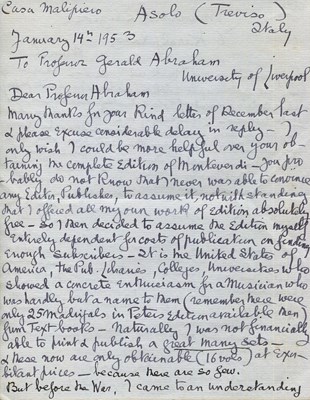 Casa Malipiero Asolo (Treviso)
Italy
January 14th 1953
To Professor Gerald Abraham
University of Liverpool
Dear Professor Abraham
Many thanks for your Kind letter of December last
& please excuse considerable delay in reply – I
only wish I could be more helpful over your ob-
taining the complete Edition of Monteverdi – you pro
bably do not Know that I never was able to convince
any Editor, Publisher, to assume it, notwithstanding
that I offered all my own work of Edition absolutely
free – so I then decided to assume the Edition myself
Entirely dependent for costs of publication on finding
Enough Subscribers – It is the United States of
America, the Pub. libraries, Colleges, Universities who
showed a concrete Enthusiasm for a Musician who
was hardly but a name to them (remember there were
only 25 Madrigals in Peters Edition available then)
from Text books – Naturally I was not financially
able to print & publish a great many sets –
& these now are only obtainable (16 vols) at Exor
bitant prices – because there are so few.
But before the War, I came to an understanding